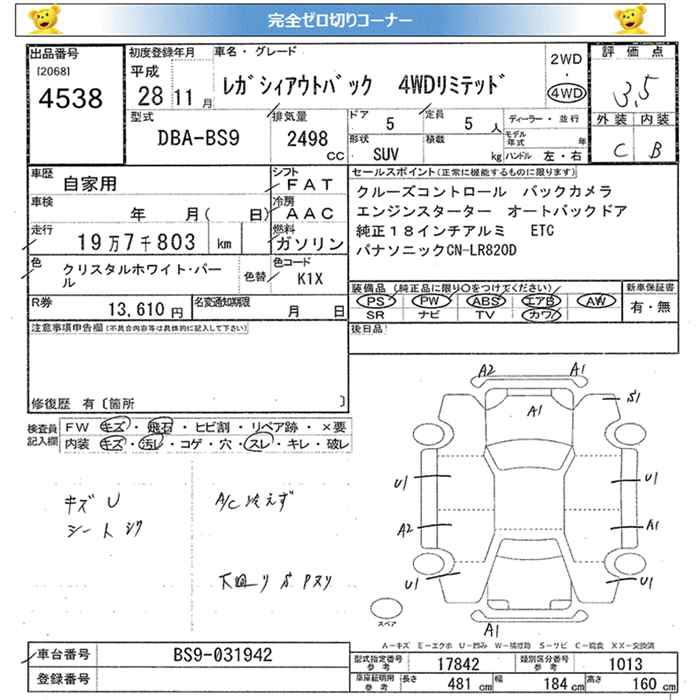 完全ゼロ切りコーナー
出品番号
[2068]
4538
初度登録年月
平成
28 11 月
車名・グレード
レガシィアウトバック 4WDリミテッド
2WD
・
4WD
評価点
3.5
外装 内装
C B
型式
DBA-BS9
排気量
2498
CC
ドア 5
定員 5 人
形状 SUV
積載 kg
ディーラー・並行
モデル年式 年
ハンドル 左・右
車歴 自家用
シフト FAT
車検 年 月( 日)
冷房 AAC
走行 19万7千803 km
燃料 ガソリン
色 クリスタルホワイト・パール
色替
色コード K1X
R券 13,610 円
名変通知期限 月 日
セールスポイント(正常に機能するものに限ります)
クルーズコントロール バックカメラ
エンジンスターター オートバックドア
純正18インチアルミ ETC
パナソニックCN-LR820D
装備品(純正品に限り○をつけてください)
PS PW ABS エアB AW
SR ナビ TV カワ
新車保証書
有・無
後日品
注意事項申告欄(不具合内容等は具体的に記入して下さい)
修復歴 有〔箇所 〕
検査員記入欄
FW キズ・飛石・ヒビ割・リペア跡・×要
内装 キズ・汚レ・コゲ・穴・スレ・キレ・破レ
キズ U
シート シワ
A/C冷えず
下廻り S
A2 A1
A1
S1
U1 U1
A2 A1
U1 U1
A1
スペア
A-キズ E-エクボ U-凹み W-補修跡 S-サビ C-腐食 XX-交換済
車台番号 BS9-031942
登録番号
型式指定番号 参考 17842
類別区分番号 参考 1013
車庫証明用 参考 長さ 481 cm 幅 184 cm 高さ 160 cm